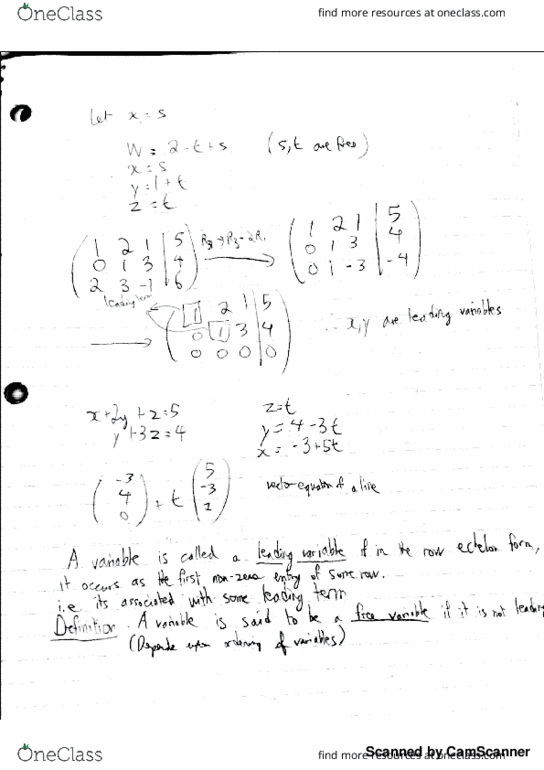 OneClass find more resources at oneclass.com
Let x = s
W = 2 - t + s (s, t are free)
x = s
y = 1 + t
z = t
1 2 1 | 5 R3 → R3 - 2R1 1 2 1 | 5
0 1 3 | 4 0 1 3 | 4
2 3 -1 | 6 0 1 -3 | -4
leading term
1 2 1 | 5
0 1 3 | 4 ∴ x, y are leading variables
0 0 0 | 0
x + 2y + z = 5 z = t
y + 3z = 4 y = 4 - 3t
x = -3 + 5t
-3 5
4 + t -3 vector equation of a line
0
A variable is called a leading variable if in the row echelon form,
it occurs as the first non-zero entry of some row.
i.e its associated with some leading term
Definition. A variable is said to be a free variable if it is not leading
(Depends upon ordering of variables)
OneClass find more resources at oneclass.com
Scanned by CamScanner